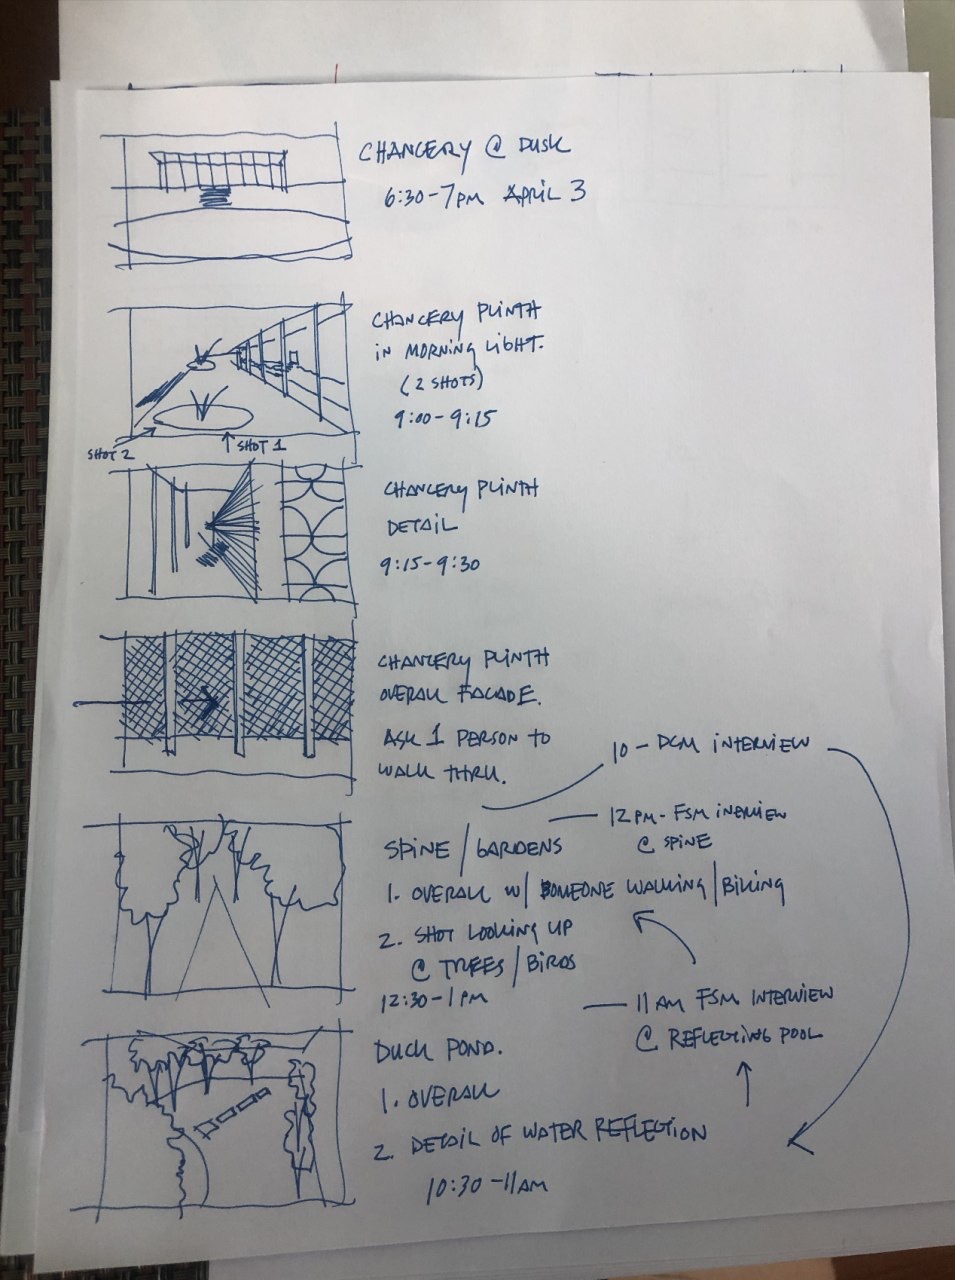 CHANCERY @ DUSK
6:30-7PM APRIL 3
CHANCERY PLINTH
IN MORNING LIGHT.
(2 SHOTS)
9:00-9:15
SHOT 2
SHOT 1
CHANCERY PLINTH
DETAIL
9:15-9:30
CHANCERY PLINTH
OVERALL FACADE.
ASK 1 PERSON TO
WALK THRU.
10 - DCM INTERVIEW
12 PM - FSM INERVIEW
@ SPINE
SPINE / GARDENS
1. OVERALL W/ SOMEONE WALKING / BIKING
2. SHOT LOOKING UP
@ TREES / BIRDS
12:30-1PM
11 AM FSM INTERVIEW
@ REFLECTING POOL
DUCK POND.
1. OVERALL
2. DETAIL OF WATER REFLECTION
10:30-11AM